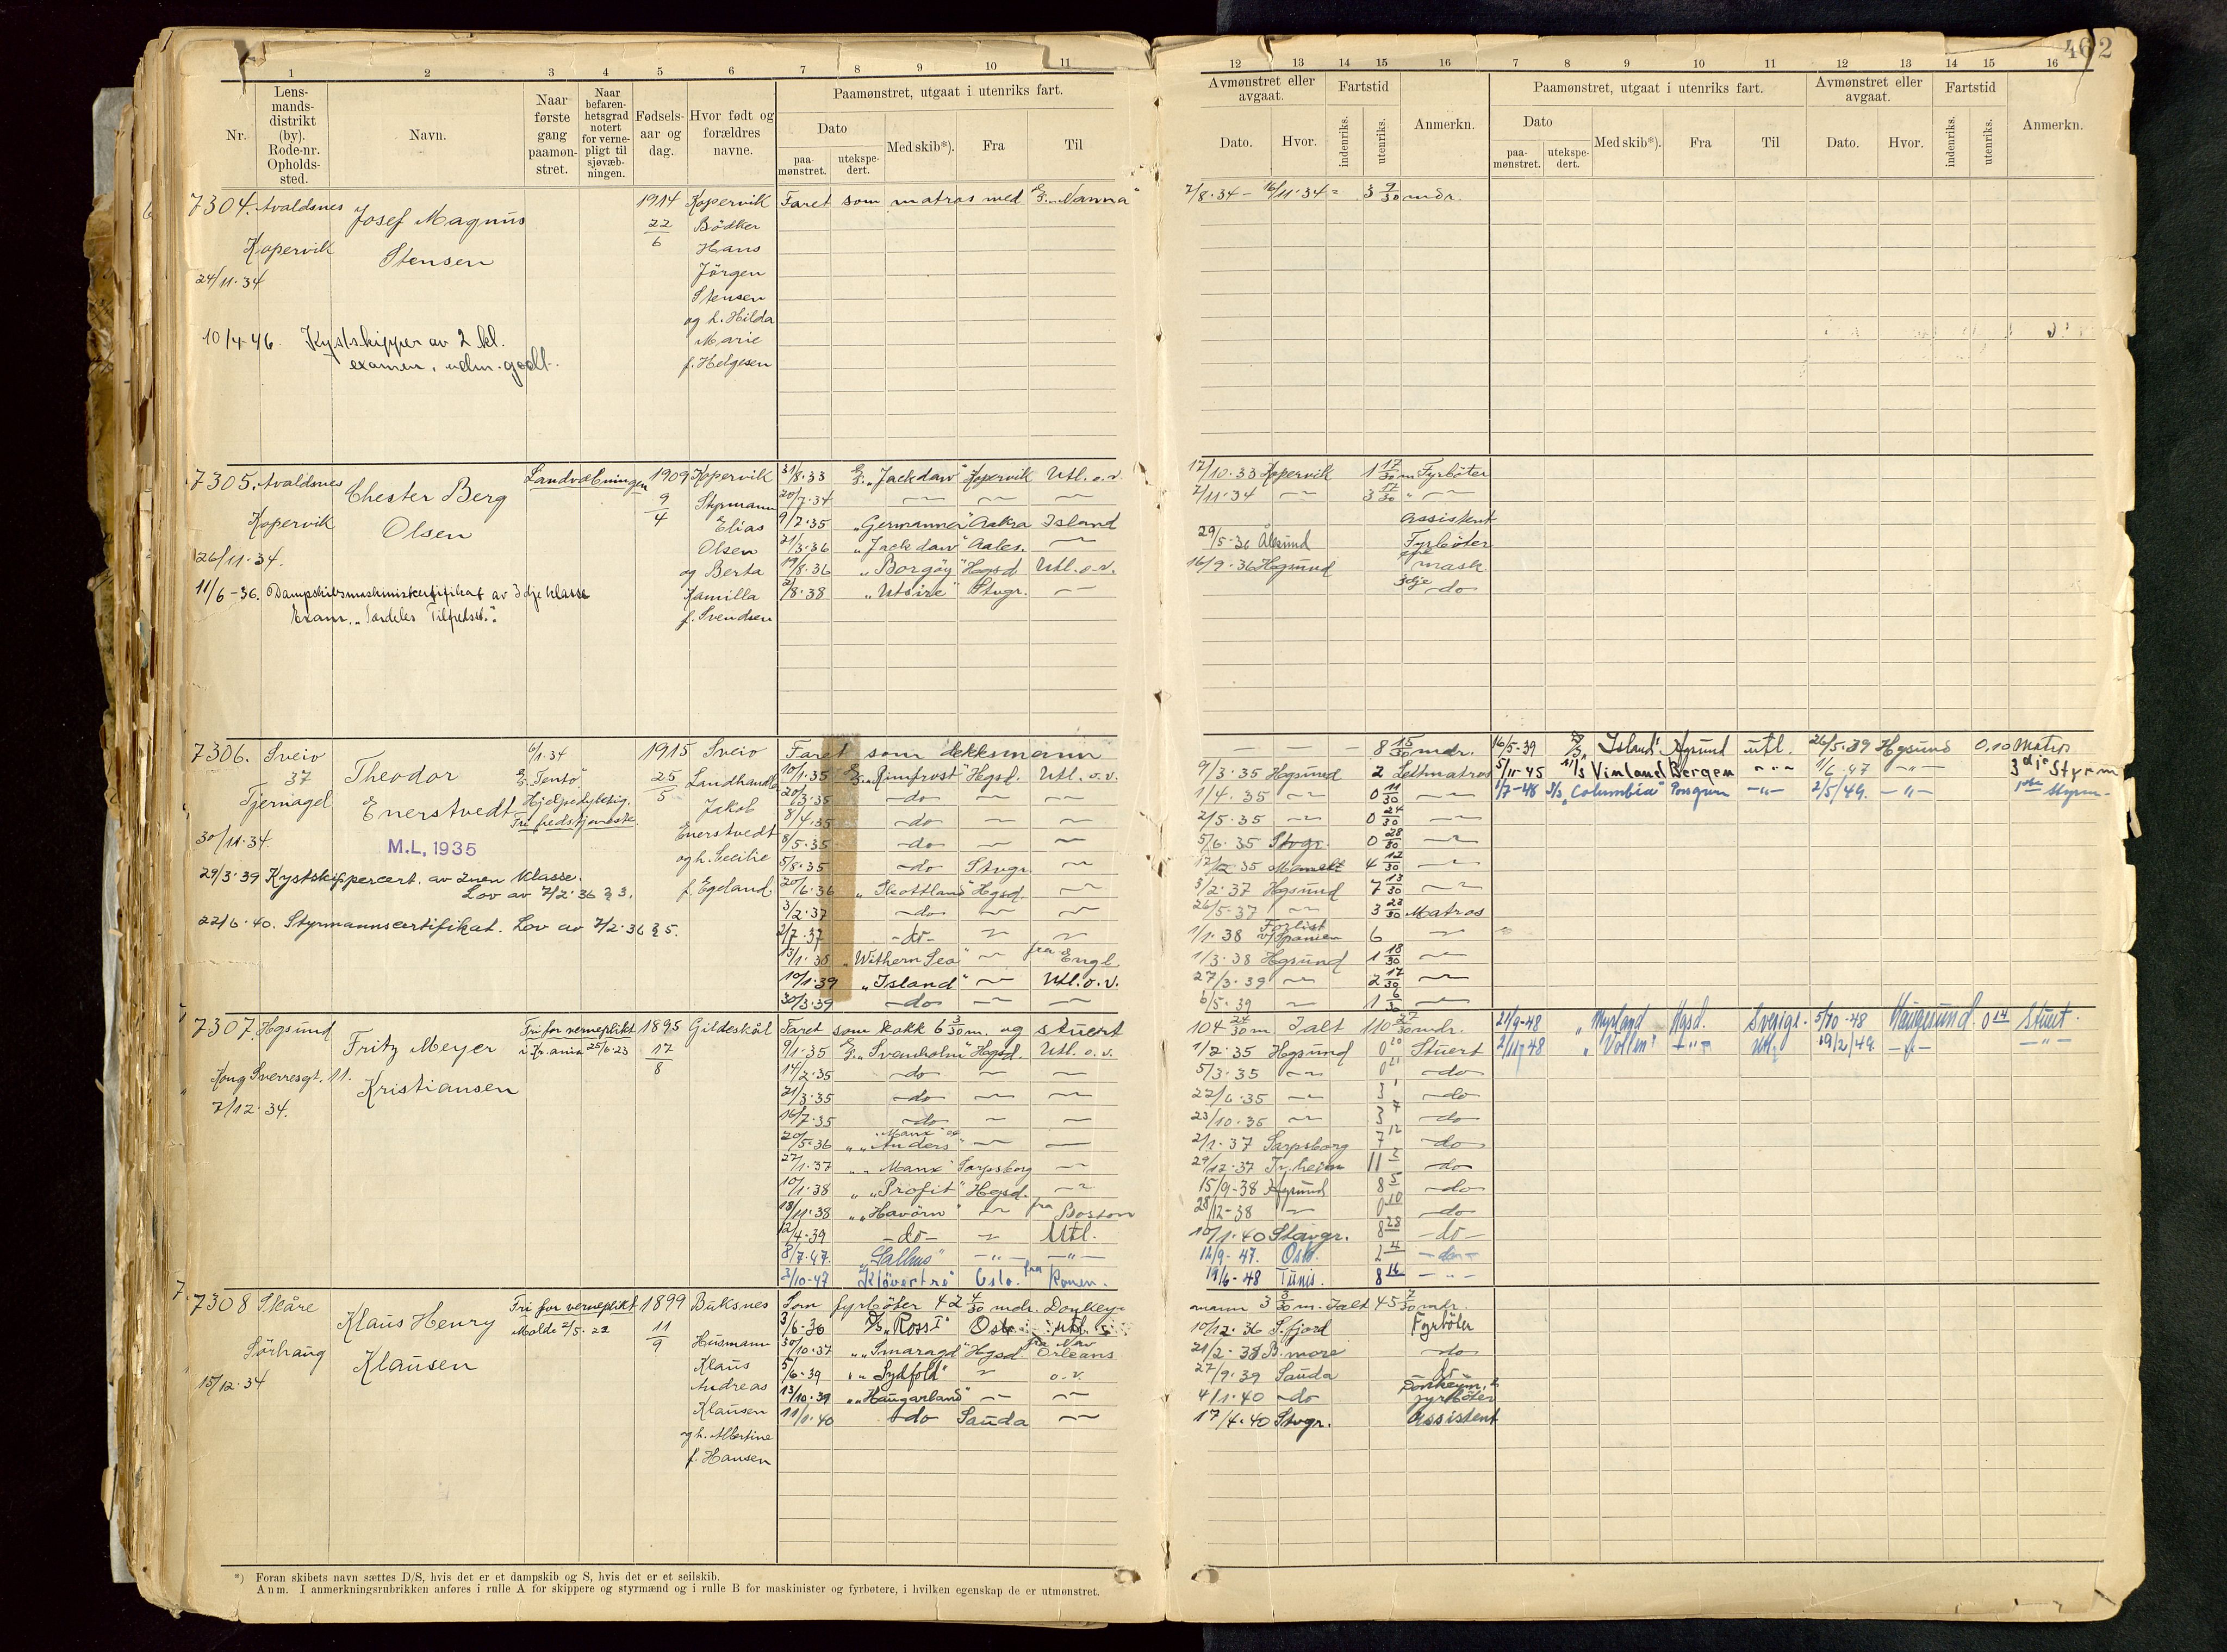 462
1 2 3 4 5 6 7 8 9 10 11
12 13 14 15 16 7 8 9 10 11 12 13 14 15 16
Nr.
Lens-
mands-
distrikt
(by).
Rode-nr.
Opholds-
sted.
Navn.
Naar
første
gang
paamøn-
stret.
Naar
befaren-
hetsgrad
notert
for verne-
pligt til
sjøvæb-
ningen.
Fødsels-
aar og
dag.
Hvor født og
forældres
navne.
Paamønstret, utgaat i utenriks fart.
Dato
paa-
mønstret.
utekspe-
dert.
Med skib*).
Fra
Til
Avmønstret eller
avgaat.
Dato.
Hvor.
Fartstid
indenriks.
utenriks.
Anmerkn.
Paamønstret, utgaat i utenriks fart.
Dato
paa-
mønstret.
utekspe-
dert.
Med skib*).
Fra
Til
Avmønstret eller
avgaat.
Dato.
Hvor.
Fartstid
indenriks.
utenriks.
Anmerkn.
7304. Avaldsnes
Kopervik
24/11.34
Josef Magnus
Stensen
1914
22
6
Kopervik
Bödker
Hans
Jörgen
Stensen
og h. Hilda
Marie
f. Helgesen
Faret som matros med "Nanna"
7/8.34 - 16/11.34 = 3 9/30 mdr.
10/4-46. Kystskipper av 2 kl.
examen, udm. godt.
7305. Avaldsnes
Kopervik
26/11.34.
Chester Berg
Olsen
Landvæbningen
1909
9
4
Kopervik
Styrmann
Elias
Olsen
og Berta
Kamilla
f. Svendsen
11/6-36. Dampskibsmaskinistcertifikat av 3dje klasse
Exam. "Særdeles Tilfredsst."
31/8.33 "Jackdaw" Kopervik Utl. o.v. 17/10.33 Kopervik 1 17/30 m Fyrböter
20/7.34 7/11.34 3 17/30
9/2.35 "Germanner" Aakra Island Assistent
21/3.36 "Jackdaw" Aales. 29/5-36 Ålesund Fyrböter
19/8.36 "Borgöy" Hgsd Utl. o.v. 16/9.36 Hogsund mask.
2/8.38 "Utsire" Stvgr. 3dje do
7306. Sveio
37
Tjernagel
30/11.34.
Theodor
Enerstvedt
M.L. 1935
6/1.34
"Tento"
Hjelpedyktig.
Fri fredstjeneste.
1915
25
5
Sveio
Landhandl.
Jakob
Enerstvedt
og h. Cecilie
f. Egeland
29/3.39 Kystskippercert. av 2nen klasse.
Lov av 7/2.36 § 3.
22/6.40. Styrmannscertifikat. Lov av 7/2.36 § 5.
Faret som dekksmann 8 15/30 mdr.
10/1.35 "Rimfrost" Hgsd. Utl. o.v. 9/3.35 Hogsund 2 Lettmatros
20/3.35 do 1/4.35 0 11/30
8/4.35 do 2/5.35 0 24/30
8/5.35 do 5/6.35 Stvgr. 0 28/30
5/8.35 do Stvgr. 17/12 35 4 12/30
20/6.36 "Skottland" Hgsd. 3/2.37 Hogsund 7 13/30
3/2.37 do 26/5.37 3 23/30 Matros
2/7.37 do 1/1.38 Forlist v/Spanien 6
"Withern Sea" fra Engl. 1/3.38 Hgsund 1 18/30
10/1.39 "Island" Utl. o.v. 27/3.39 2 17/30
30/3.39 do 6/5.39 1 6/30
16/5-39 "Island" Utl. 26/5.39 Hgsund 0.10 Matros
5/11-45 Vinland Bergen 1/6.47 3dje Styrm
1/7-48 "Columbia" 2/5/49. 1ste Styrm.
7307. Hgsund
Kong Sverresgt. 11.
7/12.34.
Fritz Meyer
Kristiansen
Fri for verneplikt
i Kr.ania 25/6.23
1895
17
8
Gildeskål
Faret som kokk 6 3/30 m. og stuert 104 24/30 m Ialt 110 27/30 mdr.
9/1.35 "Svenholm" Hgsd. Utl. o.v. 1/2.35 Hogsund 0 20 Stuert
14/2.35 do 5/3.35 0 21 do
21/3.35 do 22/6.35 3 1 do
16/7.35 do 23/10.35 3 7 do
20/5.36 "Manx" og "Anders" 2/1.37 Sarpsborg 7 12 do
27/1.37 "Manx" Sarpsborg 29/12.37 Tr.heim 11 2 do
10/1.38 "Profit" Hgsd. 15/9-38 Hgsund 8 5 do
18/11.38 "Havörn" fra Boston 28/12-38 0 10 do
12/4.39 do Utl. 10/1.40 Stavgr. 8 28 do
8/7.47. 12/9-47. Oslo. 2 4 do
3/10-47 "Klövertrø" Oslo. fra 19/6-48 Tunis. 8 16
21/9-48 "Myrland" Hgsd. Sverige. 5/10-48 Haugesund. 0 14 Stuet.
2/11-48 "Vollen" Utl. 19/2/49.
7308 Skåre
Sörhaug
15/12.34
Klaus Henry
Klausen
Fri for verneplikt
Molde 2/5.22
1899
11
9
Buksnes
Husmann
Klaus
Andreas
Klausen
og h. Albertine
f. Hansen
Som fyrböter 42 4/30 mdr. Donkey-
mann 3 3/30 m. Ialt 45 7/30 mdr.
3/6-36 D/S "Ross I" Oslo Utl. 10/12.36 S.fjord Fyrböter
30/10.37 "Smaragd" Hgsd fra New Orleans 21/2.38 B.more do
5/6-39 "Sydfold" o.v. 27/9.39 Sauda
13/10.39 "Haugarland" 4/1.40 do fyrböter
11/1.40 do Sauda 17/4.40 Stvgr. Assistent
*) Foran skibets navn sættes D/S, hvis det er et dampskib og S, hvis det er et seilskib.
Anm. I anmerkningsrubrikken anføres i rulle A for skippere og styrmænd og i rulle B for maskinister og fyrbøtere, i hvilken egenskap de er utmønstret.